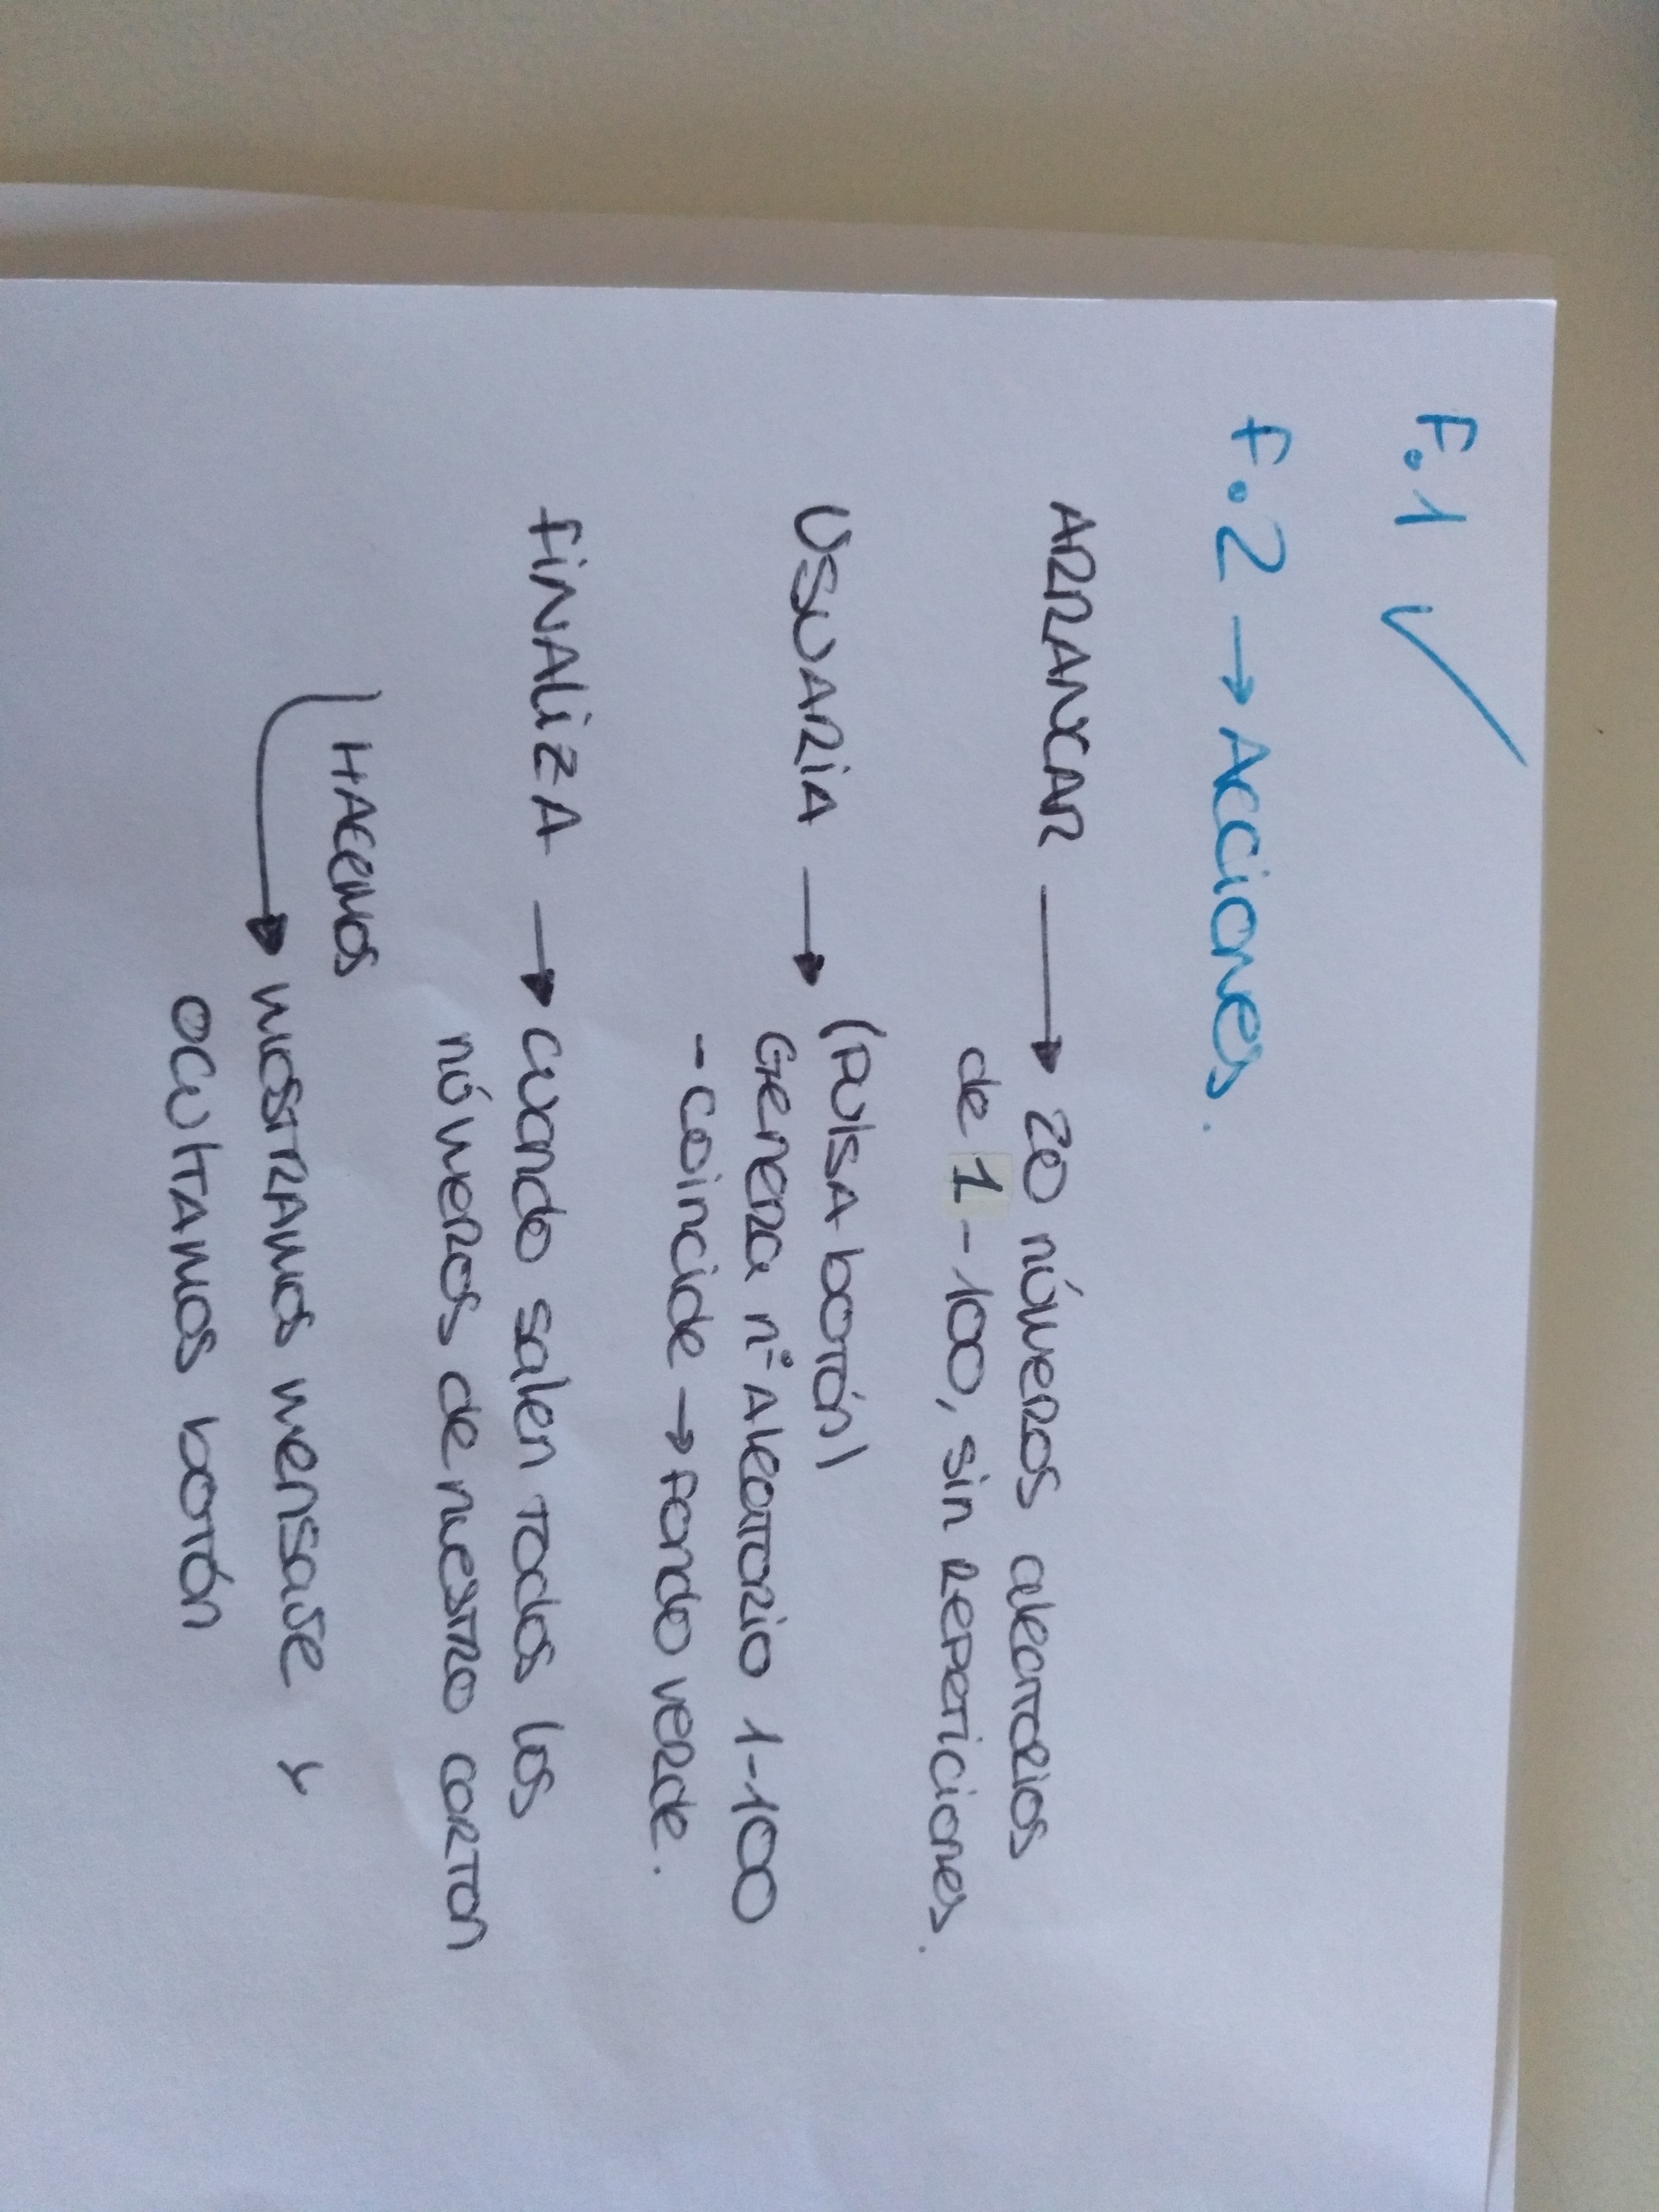 F.1 ✓
F.2 → Acciones.
ARRANCAR → 20 números aleatorios
de 1-100, sin repeticiones.
USUARIA → (pulsa botón)
Genera nº Aleatorio 1-100
- Coincide → fondo verde.
finaliza → cuando salen todos los
números de nuestro carton
Hacemos
mostramos mensaje y
ocultamos botón